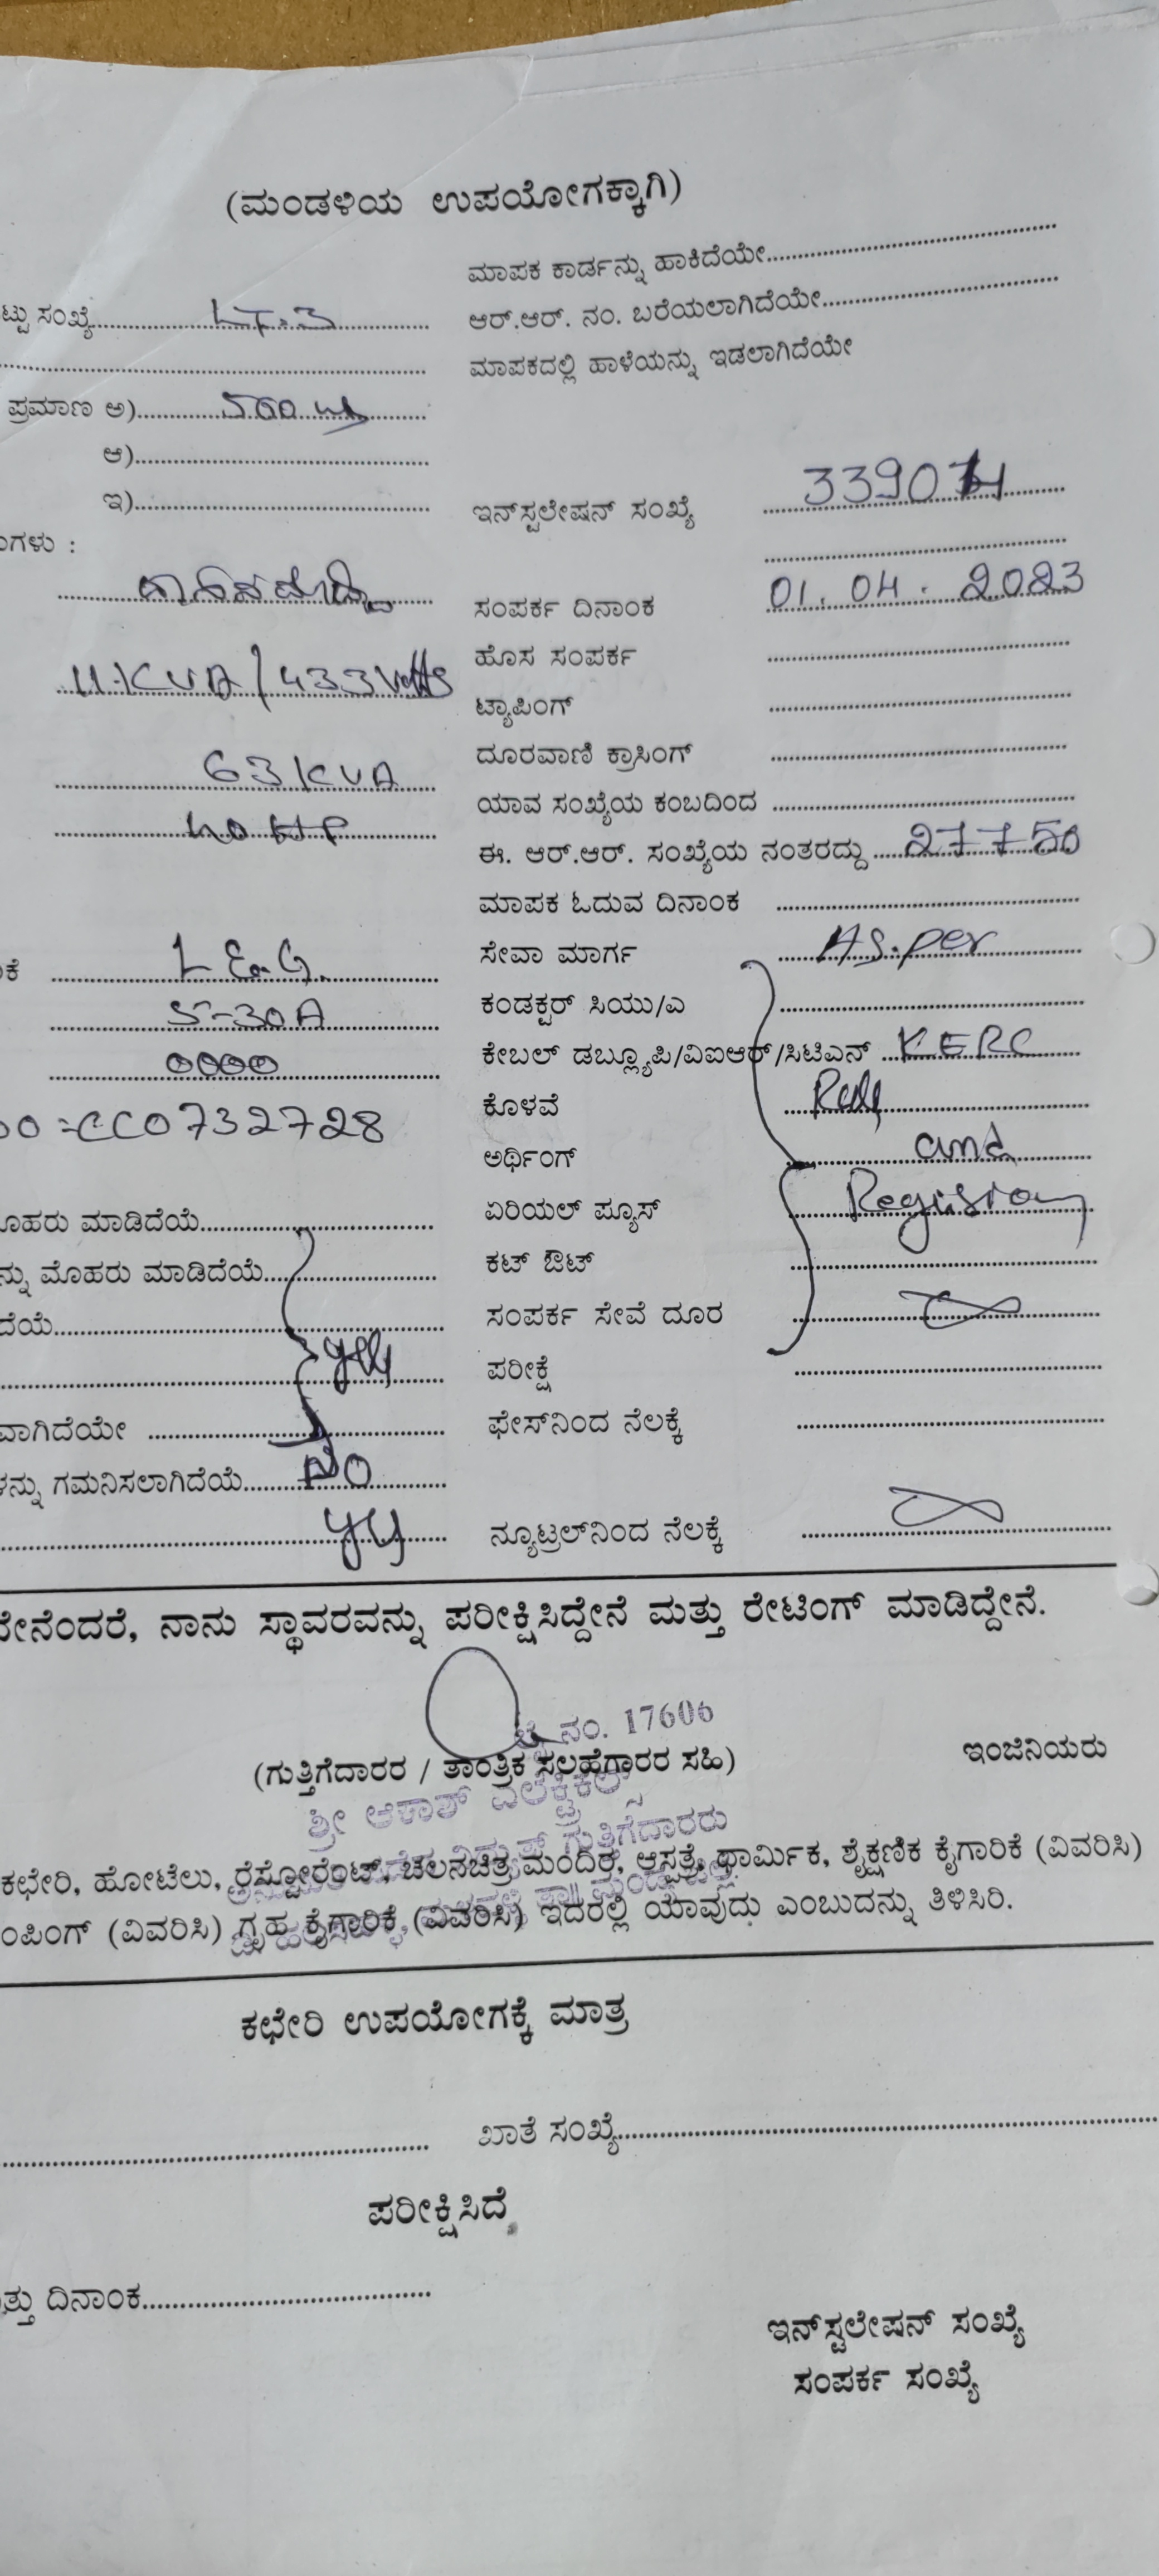 (ಮಂಡಳಿಯ ಉಪಯೋಗಕ್ಕಾಗಿ)
ಮಾಪಕ ಕಾರ್ಡನ್ನು ಹಾಕಿದೆಯೇ
ಟ್ಟು ಸಂಖ್ಯೆ LT-3
ಆರ್.ಆರ್. ನಂ. ಬರೆಯಲಾಗಿದೆಯೇ
ಮಾಪಕದಲ್ಲಿ ಹಾಳೆಯನ್ನು ಇಡಲಾಗಿದೆಯೇ
ಪ್ರಮಾಣ ಅ) 500
ಆ)
ಇ)
ಇನ್‌ಸ್ಟಲೇಷನ್ ಸಂಖ್ಯೆ
ಗಳು :
ಸಂಪರ್ಕ ದಿನಾಂಕ 01.04.2023
11KVA/433Volts ಹೊಸ ಸಂಪರ್ಕ
ಟ್ಯಾಪಿಂಗ್
63KVA ದೂರವಾಣಿ ಕ್ರಾಸಿಂಗ್
40HP ಯಾವ ಸಂಖ್ಯೆಯ ಕಂಬದಿಂದ
ಈ. ಆರ್.ಆರ್. ಸಂಖ್ಯೆಯ ನಂತರದ್ದು 27750
ಮಾಪಕ ಓದುವ ದಿನಾಂಕ
ಕೆ L&G. ಸೇವಾ ಮಾರ್ಗ As.per
5-30A ಕಂಡಕ್ಟರ್ ಸಿಯು/ಎ
0000 ಕೇಬಲ್ ಡಬ್ಲ್ಯೂಪಿ/ವಿಐಆರ್/ಸಿಟಿಎನ್ KERC
CC0732728 ಕೊಳವೆ
ಅರ್ಥಿಂಗ್ and
ೊಹರು ಮಾಡಿದೆಯೆ ಏರಿಯಲ್ ಪ್ಯೂಸ್
ನ್ನು ಮೊಹರು ಮಾಡಿದೆಯೆ ಕಟ್ ಔಟ್
ದೆಯೆ ಸಂಪರ್ಕ ಸೇವೆ ದೂರ
ಪರೀಕ್ಷೆ
ವಾಗಿದೆಯೇ ಫೇಸ್‌ನಿಂದ ನೆಲಕ್ಕೆ
ಳನ್ನು ಗಮನಿಸಲಾಗಿದೆಯೆ No
ನ್ಯೂಟ್ರಲ್‌ನಿಂದ ನೆಲಕ್ಕೆ
ೇನೆಂದರೆ, ನಾನು ಸ್ಥಾವರವನ್ನು ಪರೀಕ್ಷಿಸಿದ್ದೇನೆ ಮತ್ತು ರೇಟಿಂಗ್ ಮಾಡಿದ್ದೇನೆ.
ನಂ. 17606
(ಗುತ್ತಿಗೆದಾರರ / ತಾಂತ್ರಿಕ ಸಲಹೆಗಾರರ ಸಹಿ) ಇಂಜಿನಿಯರು
ಶ್ರೀ ಆಕಾಶ್ ಎಲೆಕ್ಟ್ರಿಕಲ್ಸ್
ಗುತ್ತಿಗೆದಾರರು
ಕಛೇರಿ, ಹೋಟೆಲು, ರೆಸ್ಟೋರೆಂಟ್, ಚಲನಚಿತ್ರ ಮಂದಿರ, ಆಸ್ಪತ್ರೆ, ಧಾರ್ಮಿಕ, ಶೈಕ್ಷಣಿಕ ಕೈಗಾರಿಕೆ (ವಿವರಿಸಿ)
ಂಪಿಂಗ್ (ವಿವರಿಸಿ) ಗೃಹ ಕೈಗಾರಿಕೆ (ವಿವರಿಸಿ) ಇದರಲ್ಲಿ ಯಾವುದು ಎಂಬುದನ್ನು ತಿಳಿಸಿರಿ.
ಕಛೇರಿ ಉಪಯೋಗಕ್ಕೆ ಮಾತ್ರ
ಖಾತೆ ಸಂಖ್ಯೆ
ಪರೀಕ್ಷಿಸಿದೆ
ತ್ತು ದಿನಾಂಕ
ಇನ್‌ಸ್ಟಲೇಷನ್ ಸಂಖ್ಯೆ
ಸಂಪರ್ಕ ಸಂಖ್ಯೆ